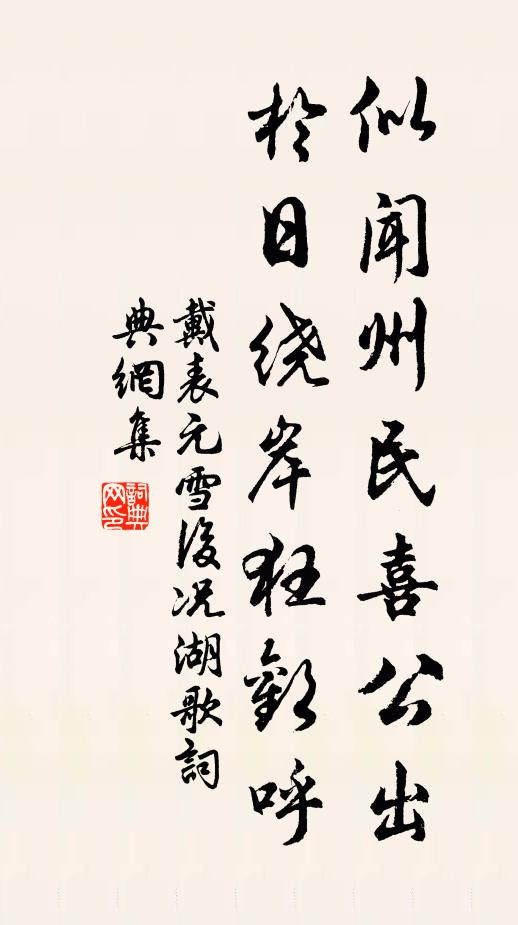 似闻州民喜公出
于日绕岸狂歡呼
戴表元雪後况湖歌詞
典網集
詞典网印